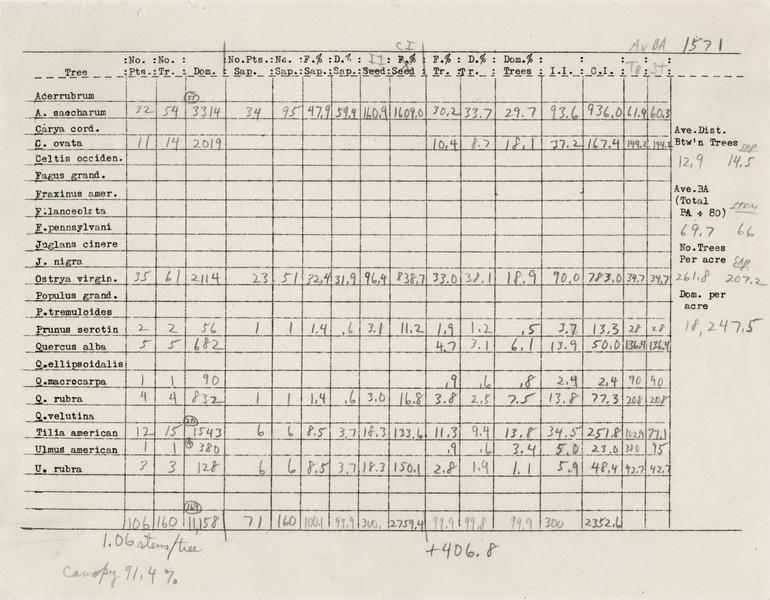 Av BA 1571
C.I
No. No. No.Pts. No. F.% D.% II F.% F.% D.% Dom.% Tr. St.
Tree Pts. Tr. Dom. Sap. Sap. Sap. Sap. Seed Seed Tr. Tr. Trees I.I. C.I.
Acerrubrum
A. saccharum 32 54 3314 34 95 47.9 59.4 160.9 1609.0 30.2 33.7 29.7 93.6 936.0 61.4 60.3
Carya cord.
C. ovata 11 14 2019 10.4 8.7 18.1 37.2 167.4 144.2 144.2
Celtis occiden.
Fagus grand.
Fraxinus amer.
F.lanceolata
F.pennsylvani
Juglans cinere
J. nigra
Ostrya virgin. 35 61 2114 23 51 32.4 31.9 96.4 838.7 33.0 38.1 18.9 90.0 783.0 34.7 34.7
Populus grand.
P.tremuloides
Prunus serotin 2 2 56 1 1 1.4 .6 3.1 11.2 1.9 1.2 .5 3.7 13.3 28 28
Quercus alba 5 5 682 4.7 3.1 6.1 13.9 50.0 136.4 136.4
Q.ellipsoidalis
Q.macrocarpa 1 1 90 .9 .6 .8 2.4 2.4 90 90
Q. rubra 4 4 832 1 1 1.4 .6 3.0 16.8 3.8 2.5 7.5 13.8 77.3 208 208
Q.velutina
Tilia american 12 15 1543 6 6 8.5 3.7 18.3 133.6 11.3 9.4 13.8 34.5 251.8 102.9 77.1
Ulmus american 1 1 380 .9 .6 3.4 5.0 23.0 380 95
U. rubra 3 3 128 6 6 8.5 3.7 18.3 150.1 2.8 1.9 1.1 5.9 48.4 42.7 42.7
169
106 160 11,158 71 160 100.1 99.9 300. 2759.4 99.9 99.8 99.9 300 2352.6
Ave.Dist.
Btw'n Trees sap
12.9 14.5
Ave.BA
(Total stem
PA ÷ 80)
69.7 66
No.Trees
Per acre sap.
261.8 207.2
Dom. per
acre
18,247.5
1.06 stems/tree
+406.8
Canopy 91.4%